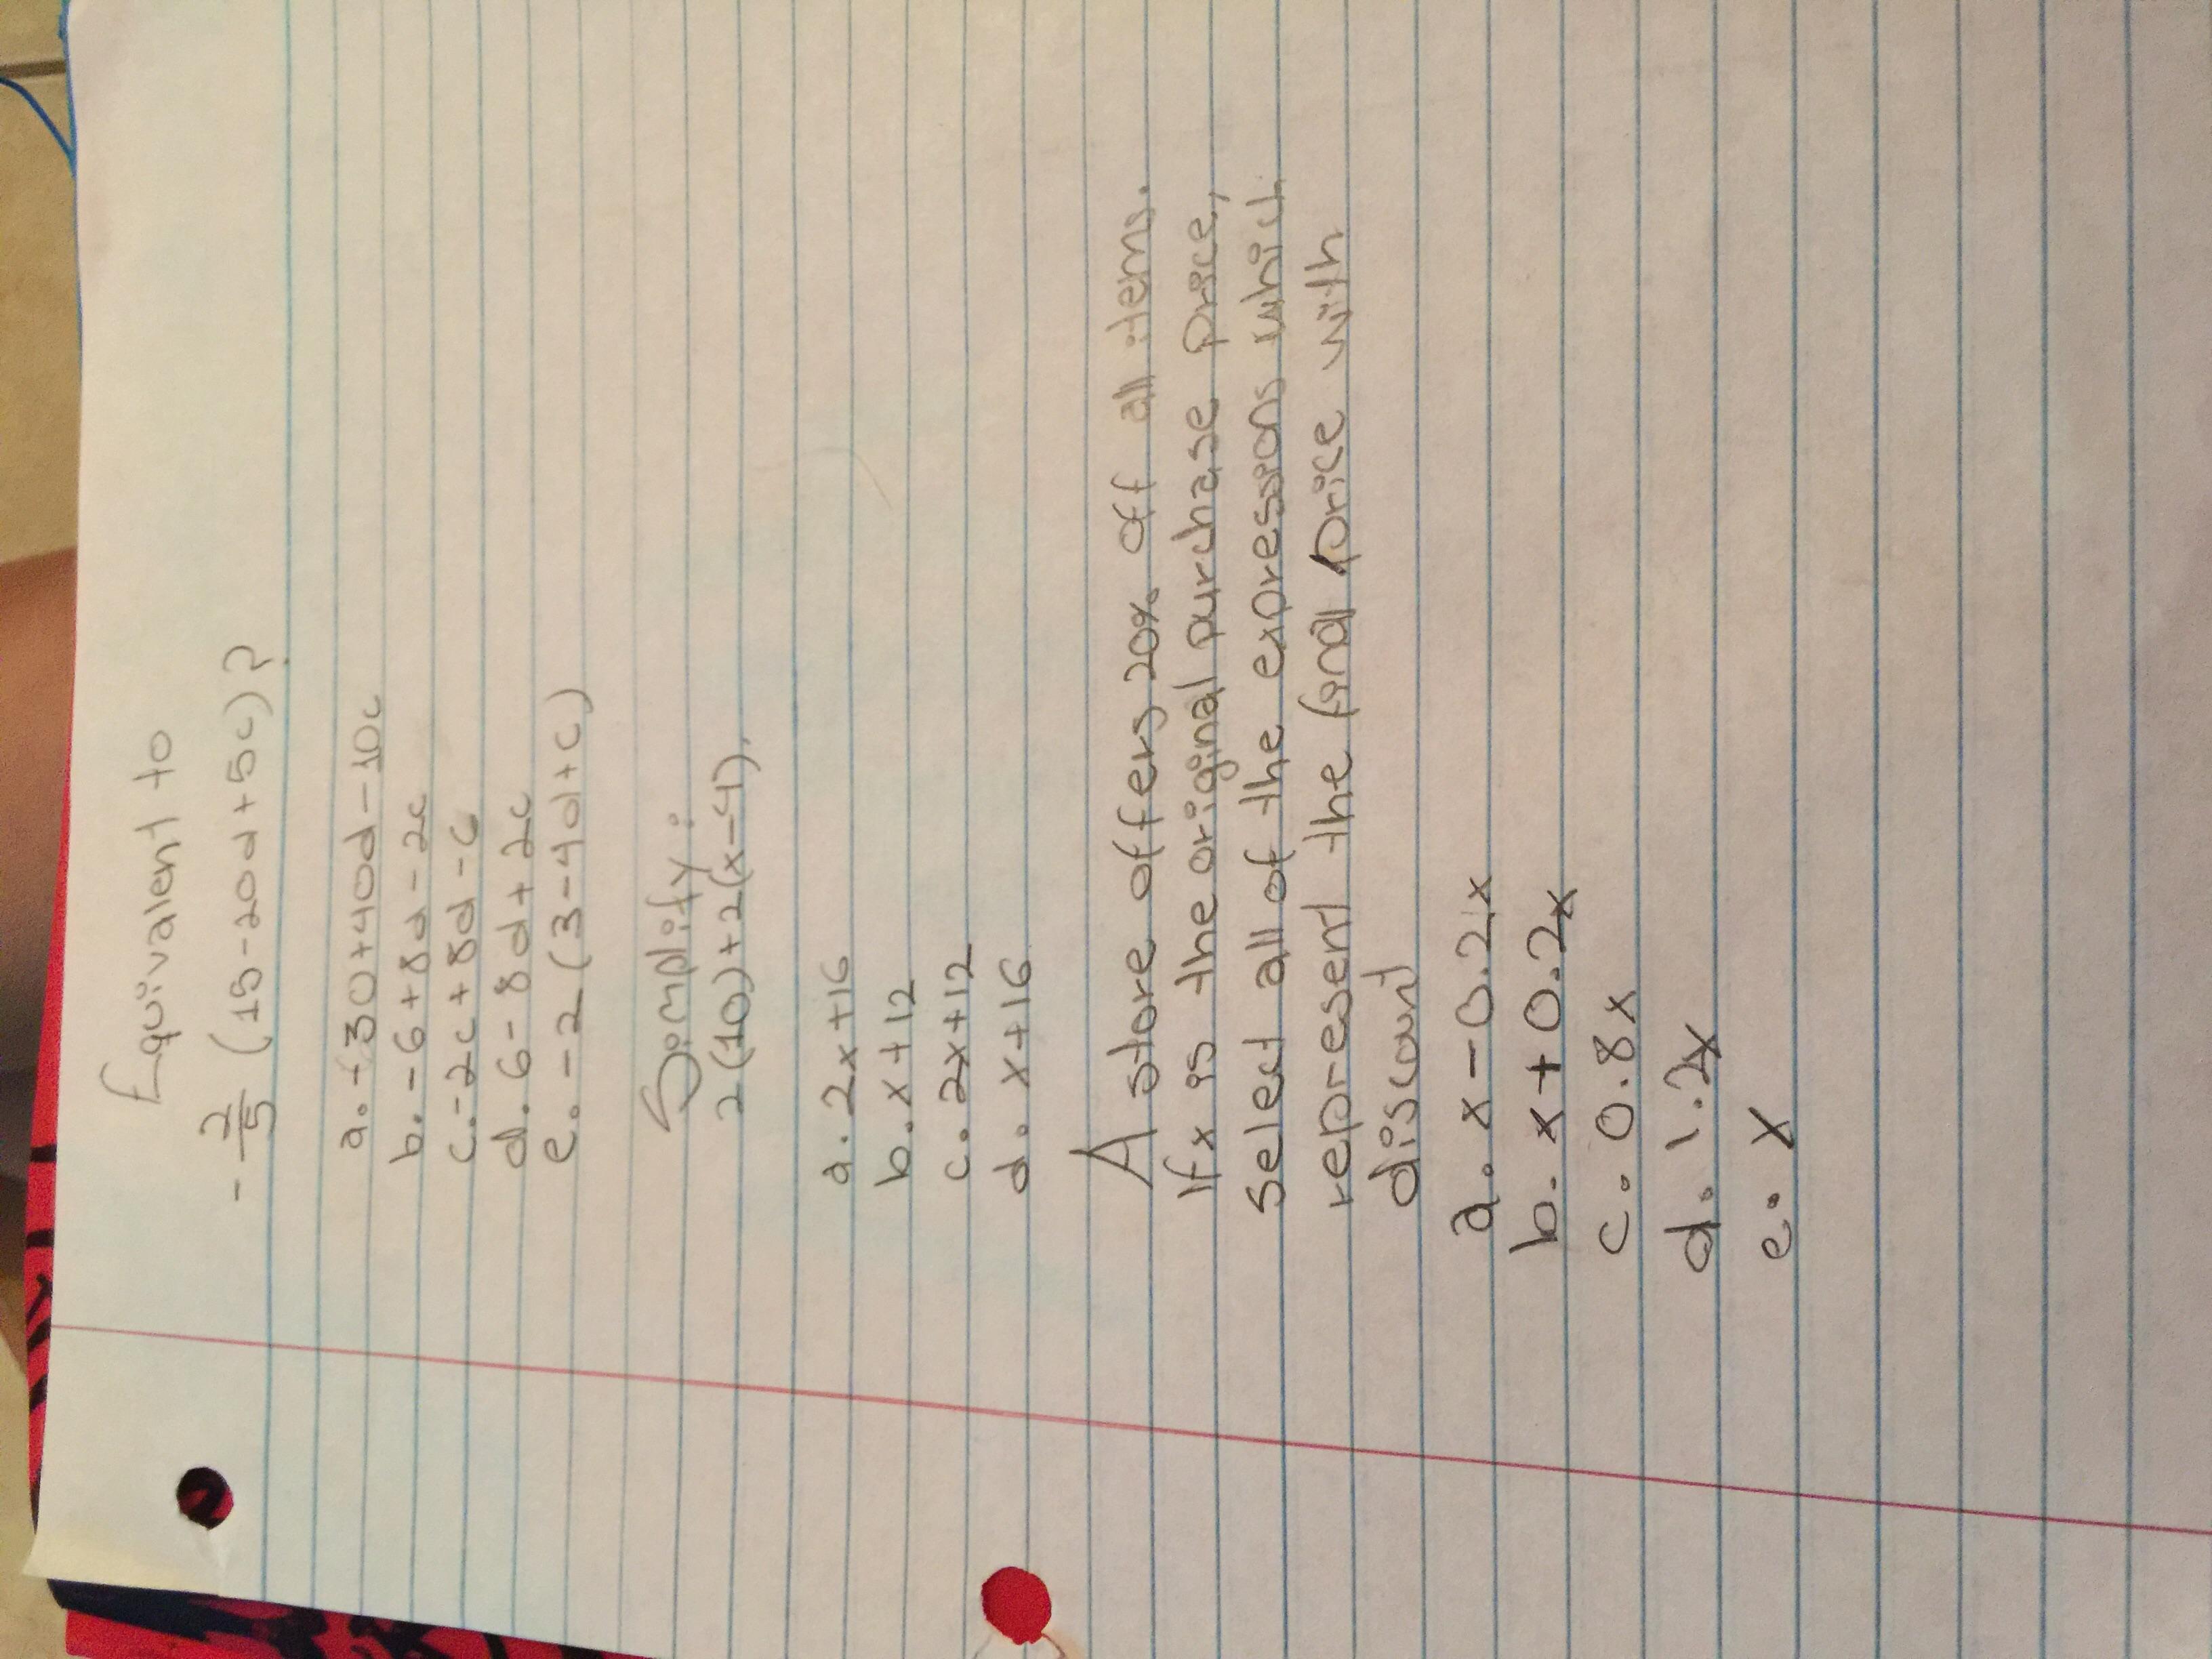 Equivalent to
- 2/5 (15-20d+5c)?
a. -30+40d-10c
b. -6+8d-2c
c. -2c+8d-6
d. 6-8d+2c
e. -2(3-4d+c)
Simplify:
2(10)+2(x-4).
a. 2x+16
b. x+12
c. 2x+12
d. x+16
A store offers 20% off all items.
If x is the original purchase price,
select all of the expressions which
represent the final price with
discount
a. x-0.2x
b. x+0.2x
c. 0.8x
d. 1.2x
e. x